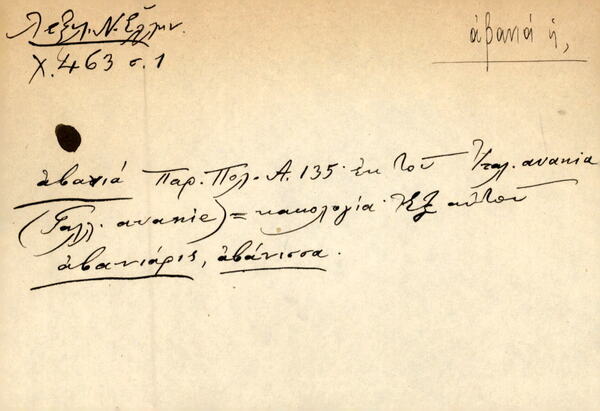 Λεξιλ. Ν. Ἑλλην.
Χ. 463 σ. 1
ἀβανιά ἡ,
ἀβανιά Παρ. Πολ. Α. 135· ἐκ τοῦ Ἰταλ. avania
(Γαλλ. avanie) = κακολογία. Ἐξ αὐτοῦ
ἀβανιάρις, ἀβάνισσα.